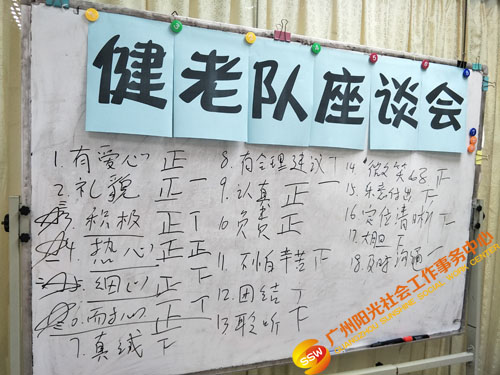 健老队座谈会
1.有爱心 正
2.礼貌 正一
3.积极 正丅
4.热心 正正
5.细心 正下
6.耐心 正丅
7.真诚 下
8.有合理建议丅
9.认真 正一
10.负责 正
11.不怕辛苦 正
12.团结
13.聆听 下
14.微笑 正
15.乐意付出 正
16.定位清晰
17.大胆 丅
18.及时沟通 一
广州阳光社会工作事务中心
GUANGZHOU SUNSHINE SOCIAL WORK CENTER
SSW